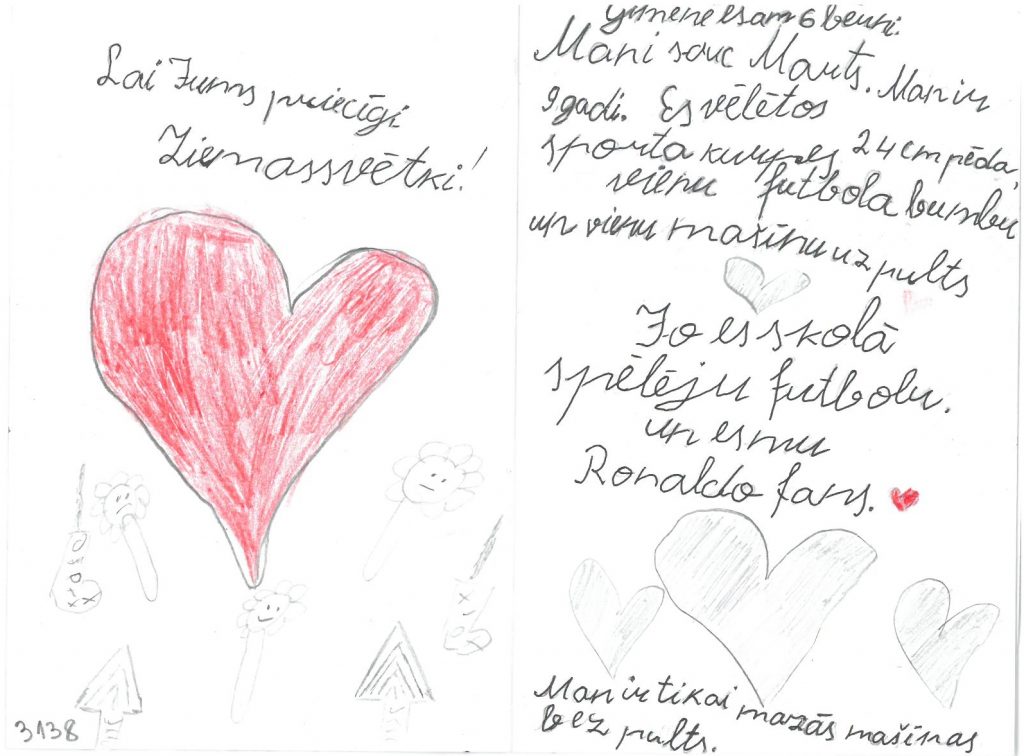 Lai Jums priecīgi
Ziemassvētki!
3138
Ģimenē esam 6 berni.
Mani sauc Marts. Man ir
9 gadi. Es vēlētos
sporta kurpes 24 cm pēda,
vienu futbola bumbu
un vienu mašīnu uz pults
Jo es skolā
spēlēju futbolu.
un esmu
Ronaldo fans.
Man ir tikai mazās mašīnas
bez pults.